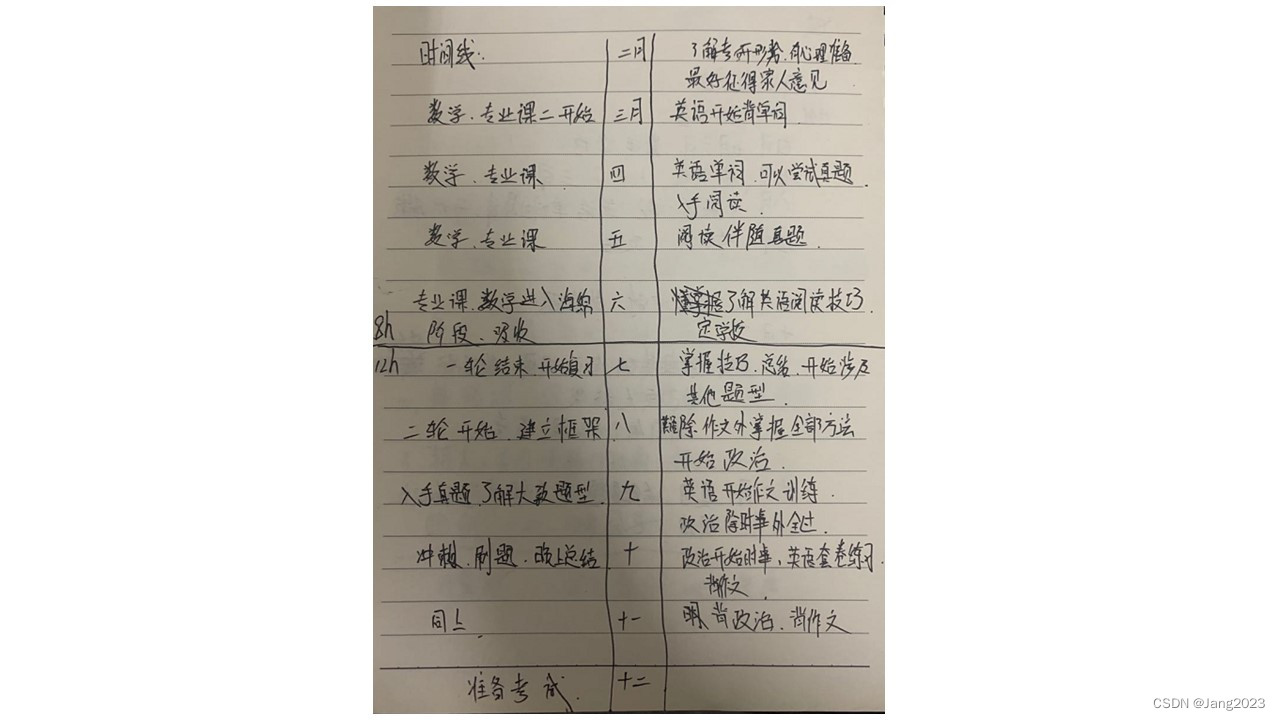 时间线: 二月 了解考研形势.有心理准备
最好征得家人意见
数学.专业课二开始 三月 英语开始背单词.
数学.专业课 四 英语单词.可以尝试真题.
入手阅读.
数学.专业课 五 阅读伴随真题.
专业课.数学进入海绵 六 了解英语阅读技巧.
8h 阶段.吸收 定学校
12h 一轮结束.开始复习 七 掌握技巧.总结.开始涉及
其他题型.
二轮开始.建立框架 八 除作文外掌握全部方法
开始政治.
入手真题.了解大致题型. 九 英语开始作文训练.
政治除时事外全过.
冲刺.刷题.晚上总结 十 政治开始时事,英语套卷练习.
背作文.
同上. 十一 背政治.背作文
准备考试. 十二
CSDN @Jang2023